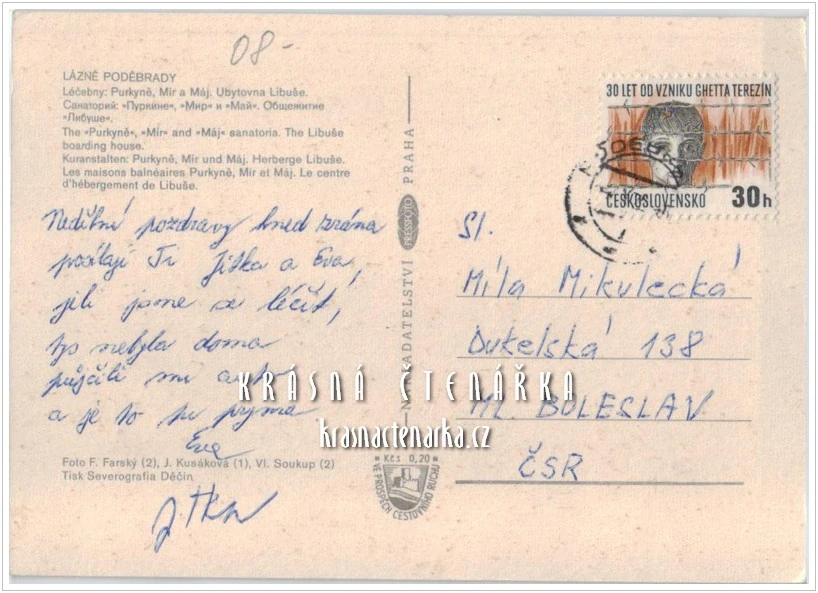 08-
LÁZNĚ PODĚBRADY
Léčebny: Purkyně, Mír a Máj. Ubytovna Libuše.
Санаторий: »Пуркине«, »Мир« и »Май«. Общежитие
»Либуше«.
The »Purkyně«, »Mír« and »Máj« sanatoria. The Libuše
boarding house.
Kuranstalten: Purkyně, Mír und Máj. Herberge Libuše.
Les maisons balnéaires Purkyně, Mír et Máj. Le centre
d'hébergement de Libuše.
Nedělní pozdravy hned zrána
posílají Ti Jitka a Eva,
jeli jsme se léčit,
tys nebyla doma
půjčili mi auto
a je to tu prýma
Eva
Foto F. Farský (2), J. Kusáková (1), Vl. Soukup (2)
Tisk Severografia Děčín
Jitka
NAKLADATELSTVÍ PRESSFOTO PRAHA
Kčs 0,20
VE PROSPĚCH CESTOVNÍHO RUCHU
30 LET OD VZNIKU GHETTA TEREZÍN
ČESKOSLOVENSKO 30h
Sl.
Míla Mikulecká
Dukelská 138
ML. BOLESLAV
ČSR
KRÁSNÁ ČTENÁŘKA
krasnactenarka.cz